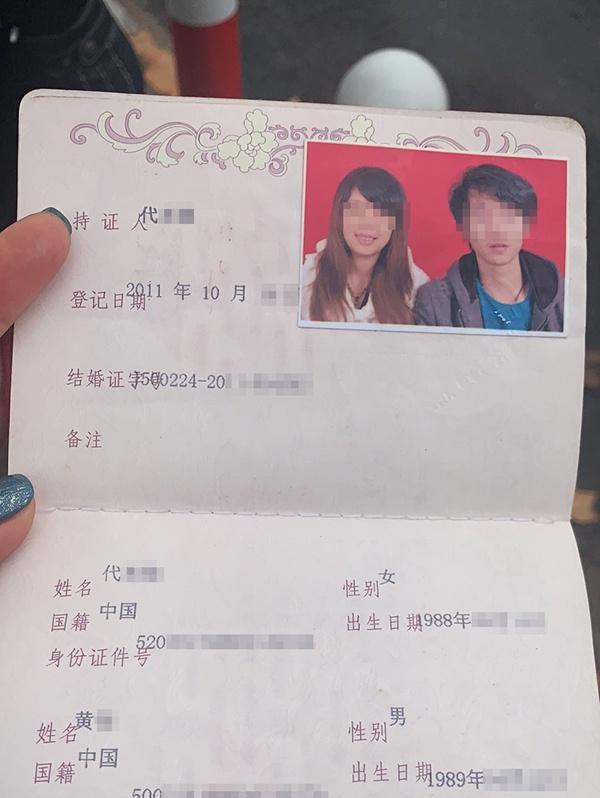 持证人 代
登记日期 2011 年 10 月
结婚证字号 J500224-20
备注
姓名 代 性别 女
国籍 中国 出生日期 1988年
身份证件号 520
姓名 黄 性别 男
国籍 中国 出生日期 1989年
500